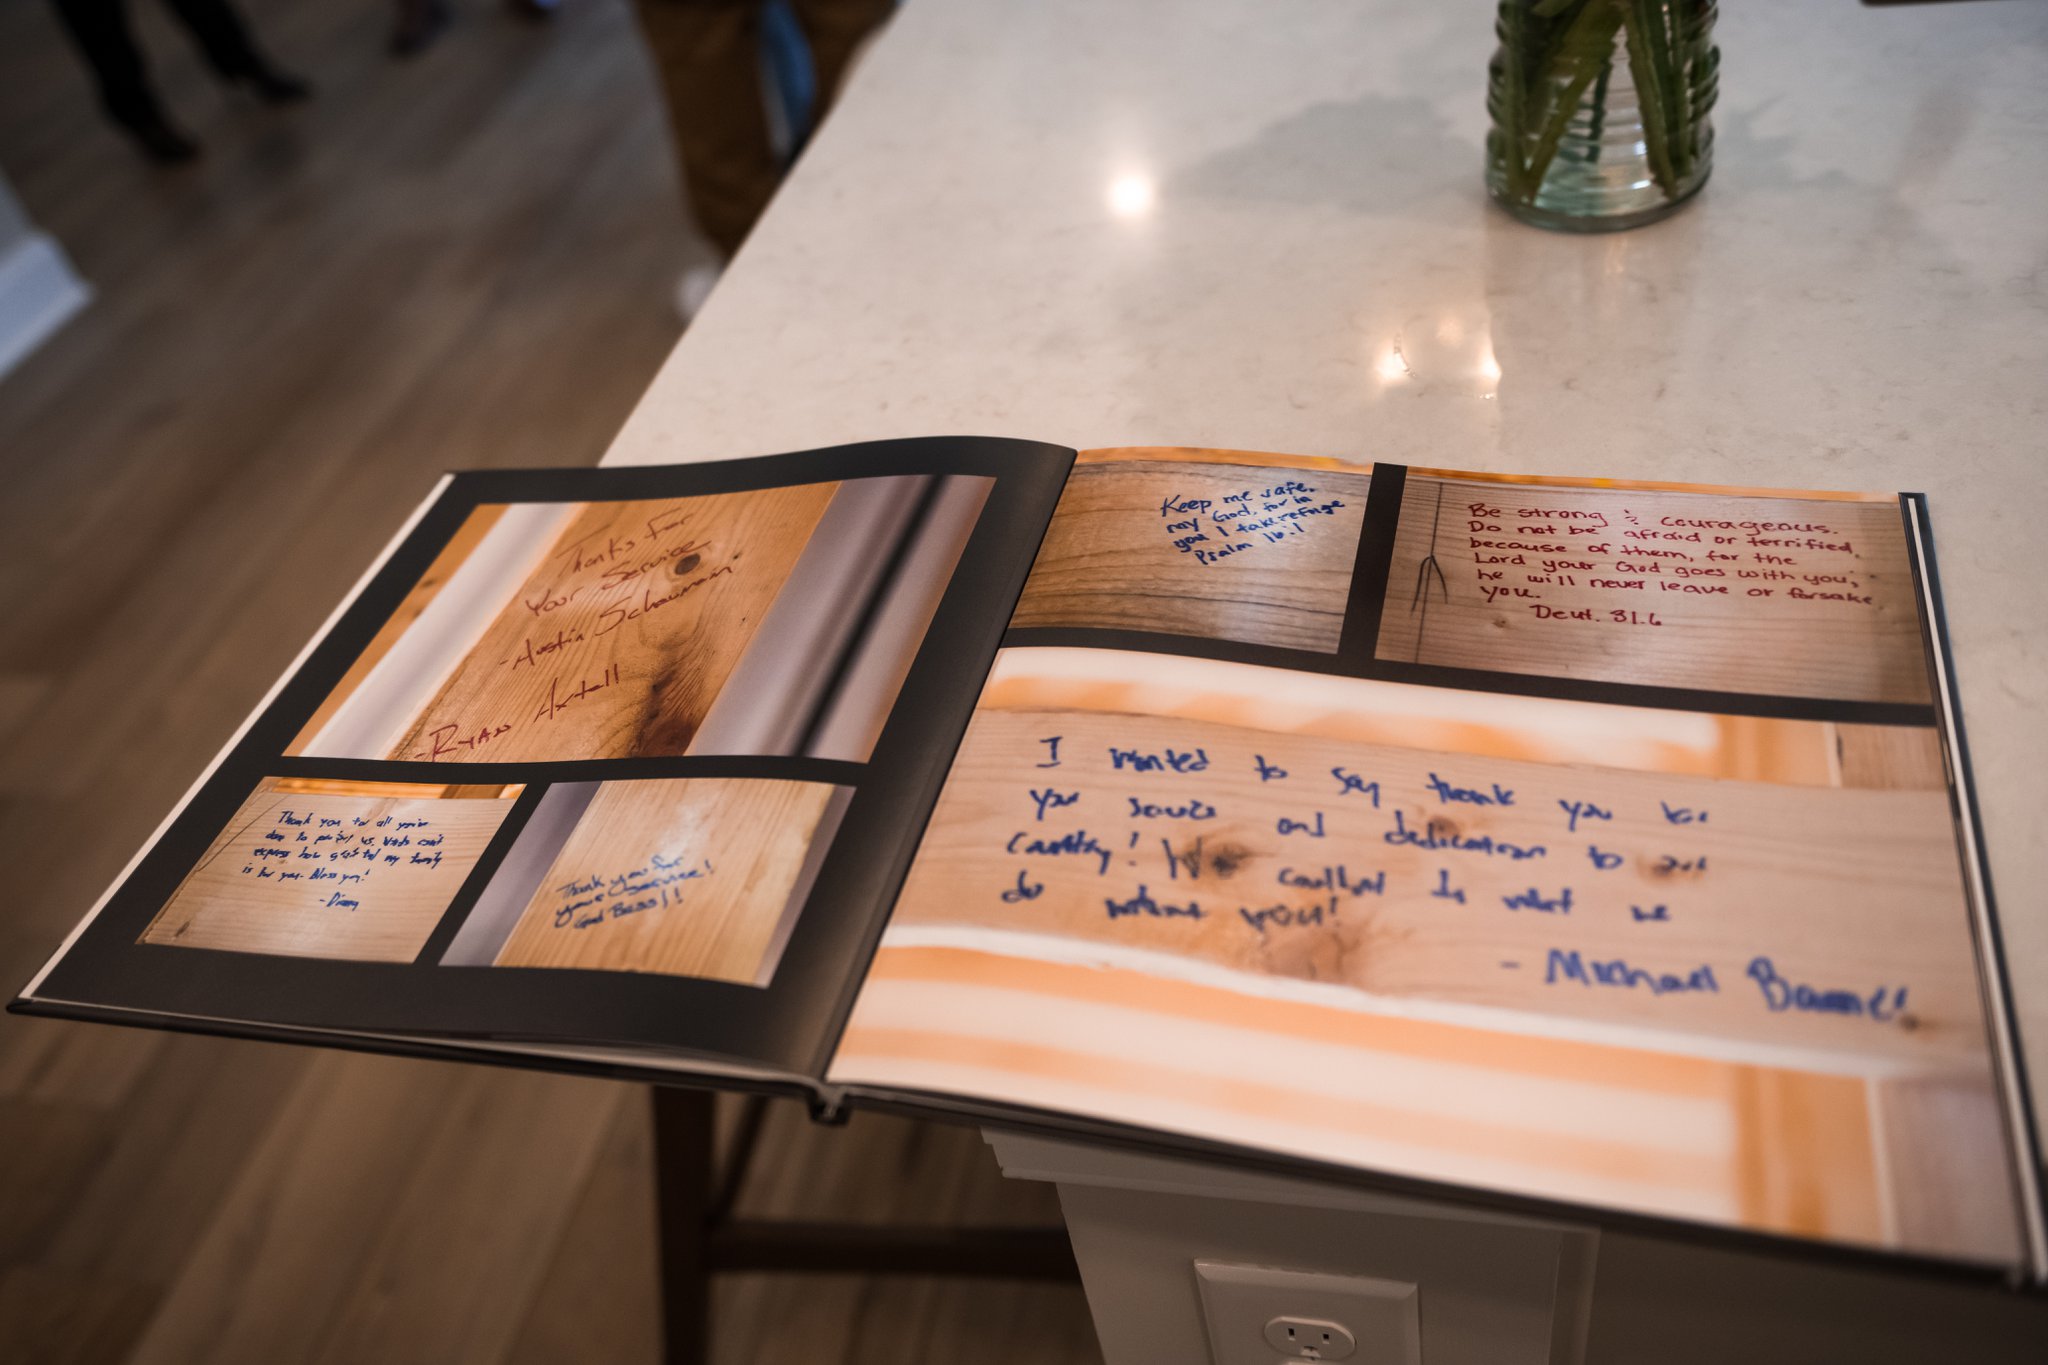 Thanks For
Your Service
-Austin Schauman
-Ryan Axtell
Thank you for all you've
done to protect us. Words can't
express how grateful my family
is for you. Bless you!
Thank you for
your service!
God Bless!!
Keep me safe,
my God, for in
you I take refuge
Psalm 16:1
Be strong & courageous.
Do not be afraid or terrified
because of them, for the
Lord your God goes with you;
he will never leave or forsake
you.
Deut. 31.6
I wanted to say thank you for
your service and dedication to our
country! We couldn't do what we
do without you!
- Michael